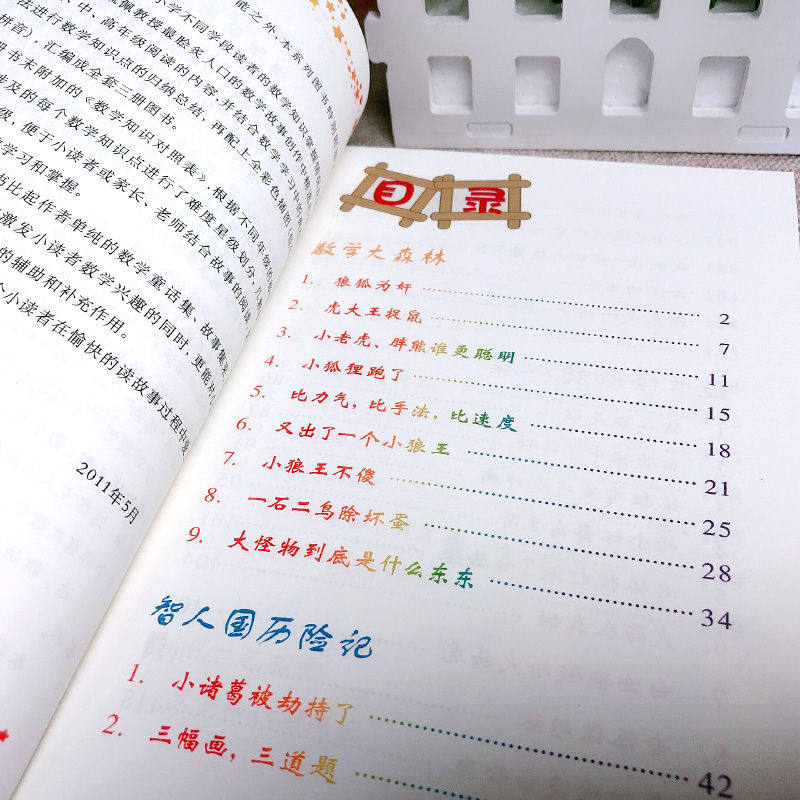 能之外，本系列图书特别
小学不同学段读者的数学知识掌握
佩教授最脍炙人口的数学故事创作中精
中、高年级阅读的内容，并结合数学学习中的
法进行数学知识点的归纳总结，再配上全彩色插图
拼音），汇编成全套三册图书。
册图书末附加的《数学知识对照表》，根据不同年级的
涉及的每个数学知识点进行了难度星级划分，
级，便于小读者或家长、老师结合故事的阅读，
学习和掌握。
书比起作者单纯的数学童话集、故事集
激发小读者数学兴趣的同时，更能
的辅助和补充作用。
个小读者在愉快的读故事过程中
2011年5月
目录
数学大森林
1. 狼狐为奸 2
2. 虎大王捉鼠 7
3. 小老虎、胖熊谁更聪明 11
4. 小狐狸跑了 15
5. 比力气，比手法，比速度 18
6. 又出了一个小狼王 21
7. 小狼王不傻 25
8. 一石二鸟除坏蛋 28
9. 大怪物到底是什么东东 34
智人国历险记
1. 小诸葛被劫持了 42
2. 三幅画，三道题